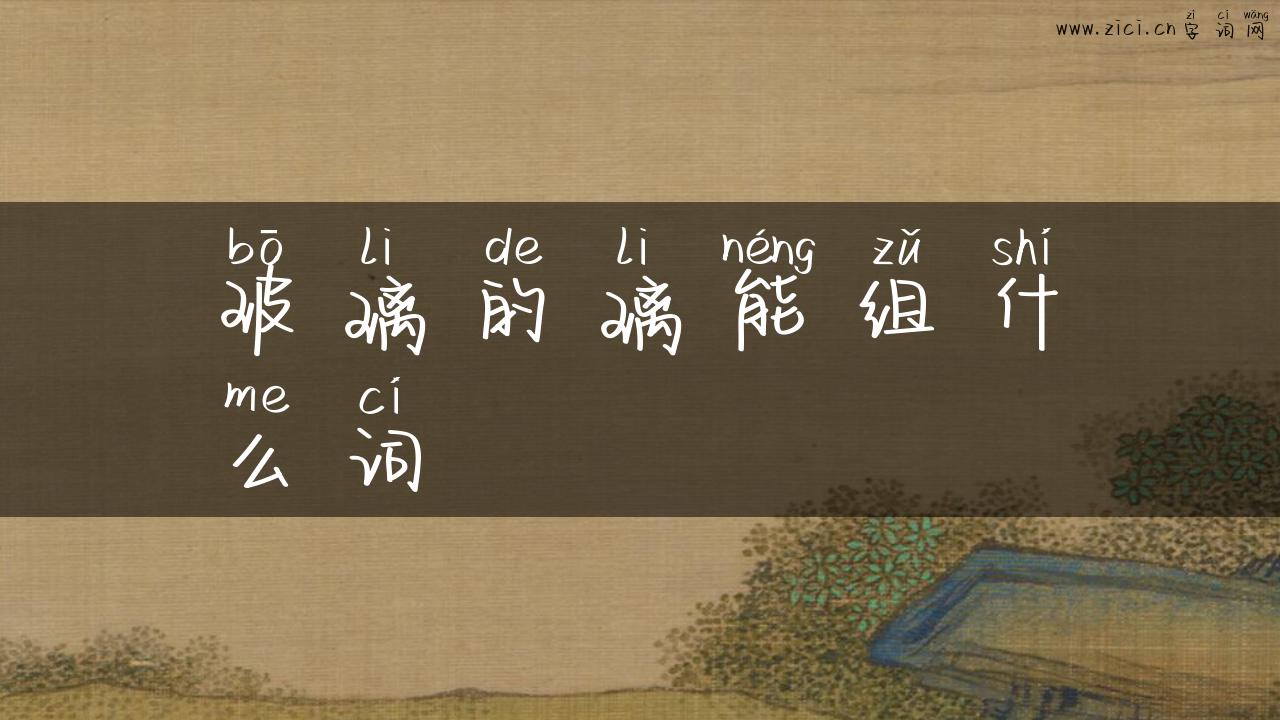 zì cí wǎng
www.zici.cn 字词网
bō li de li néng zǔ shí
玻璃的璃能组什
me cí
么词